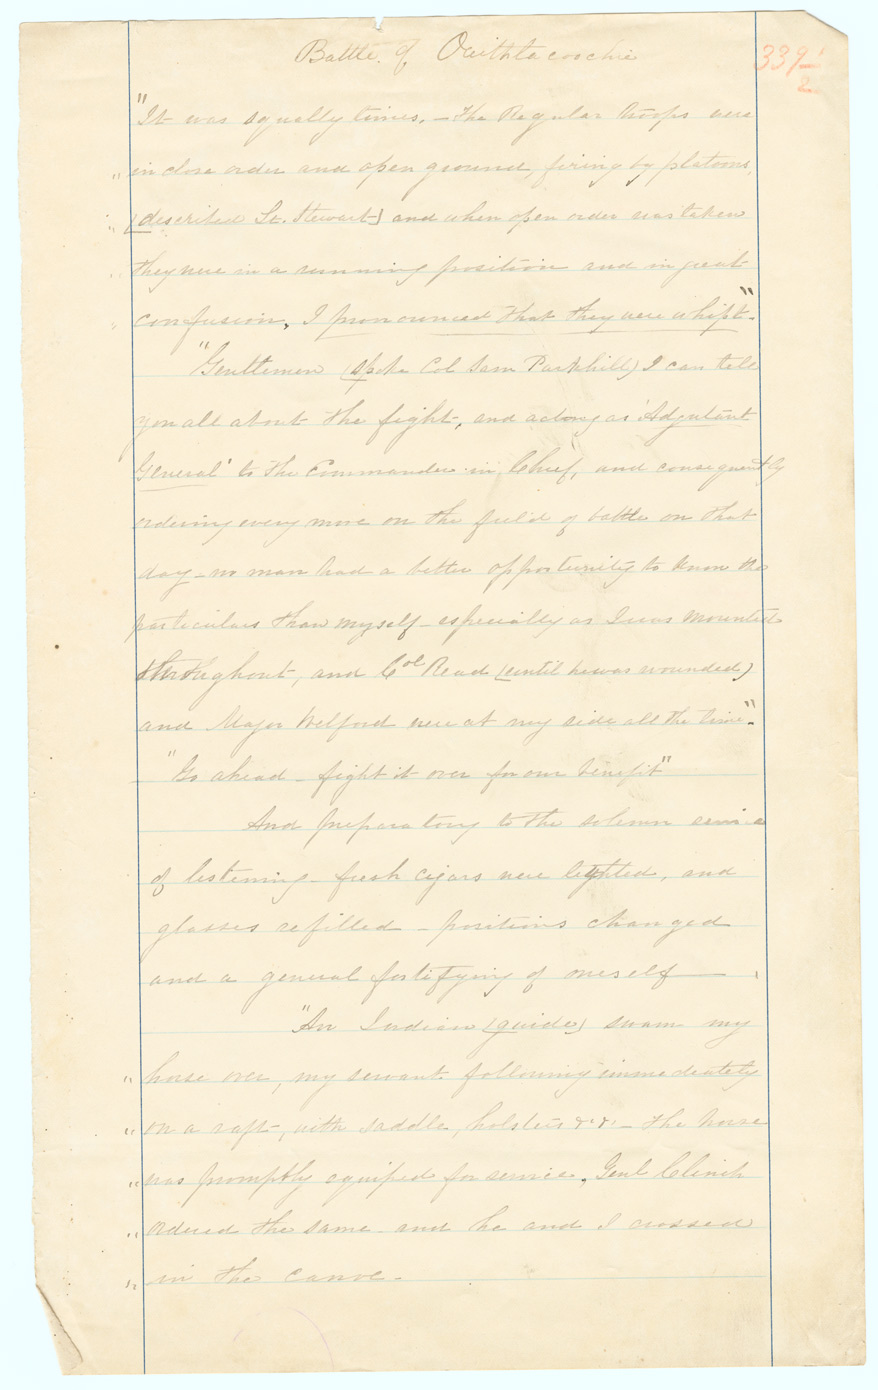 Battle of Ouithlacoochie
339 1/2
"It was squally times, - The Regular troops were
" in close order and open ground, firing by platoons,
" [described Lt. Stewart] and when open order was taken
" they were in a running position and in great
" confusion, I pronounced that they were whipt".
"Gentlemen (spoke Col Sam Parkhill) I can tell
you all about the fight, and acting as 'Adjutant
General' to the Commander in Chief, and consequently
ordering every move on the field of battle on that
day - no man had a better opportunity to know the
particulars than myself - especially as I was mounted
throughout, and Col Read (until he was wounded)
and Major Welford were at my side all the time".
"Go ahead - fight it over for our benefit"
And preparatory to the solemn service
of listening - fresh cigars were lighted, and
glasses refilled - positions changed
and a general fortifying of oneself -
"An Indian (guide) swam my
" horse over, my servant following immediately
" on a raft, with saddle, holsters &c &c - The horse
" was promptly equiped for service, Genl Clinch
" ordered the same and he and I crossed
" in the canoe -